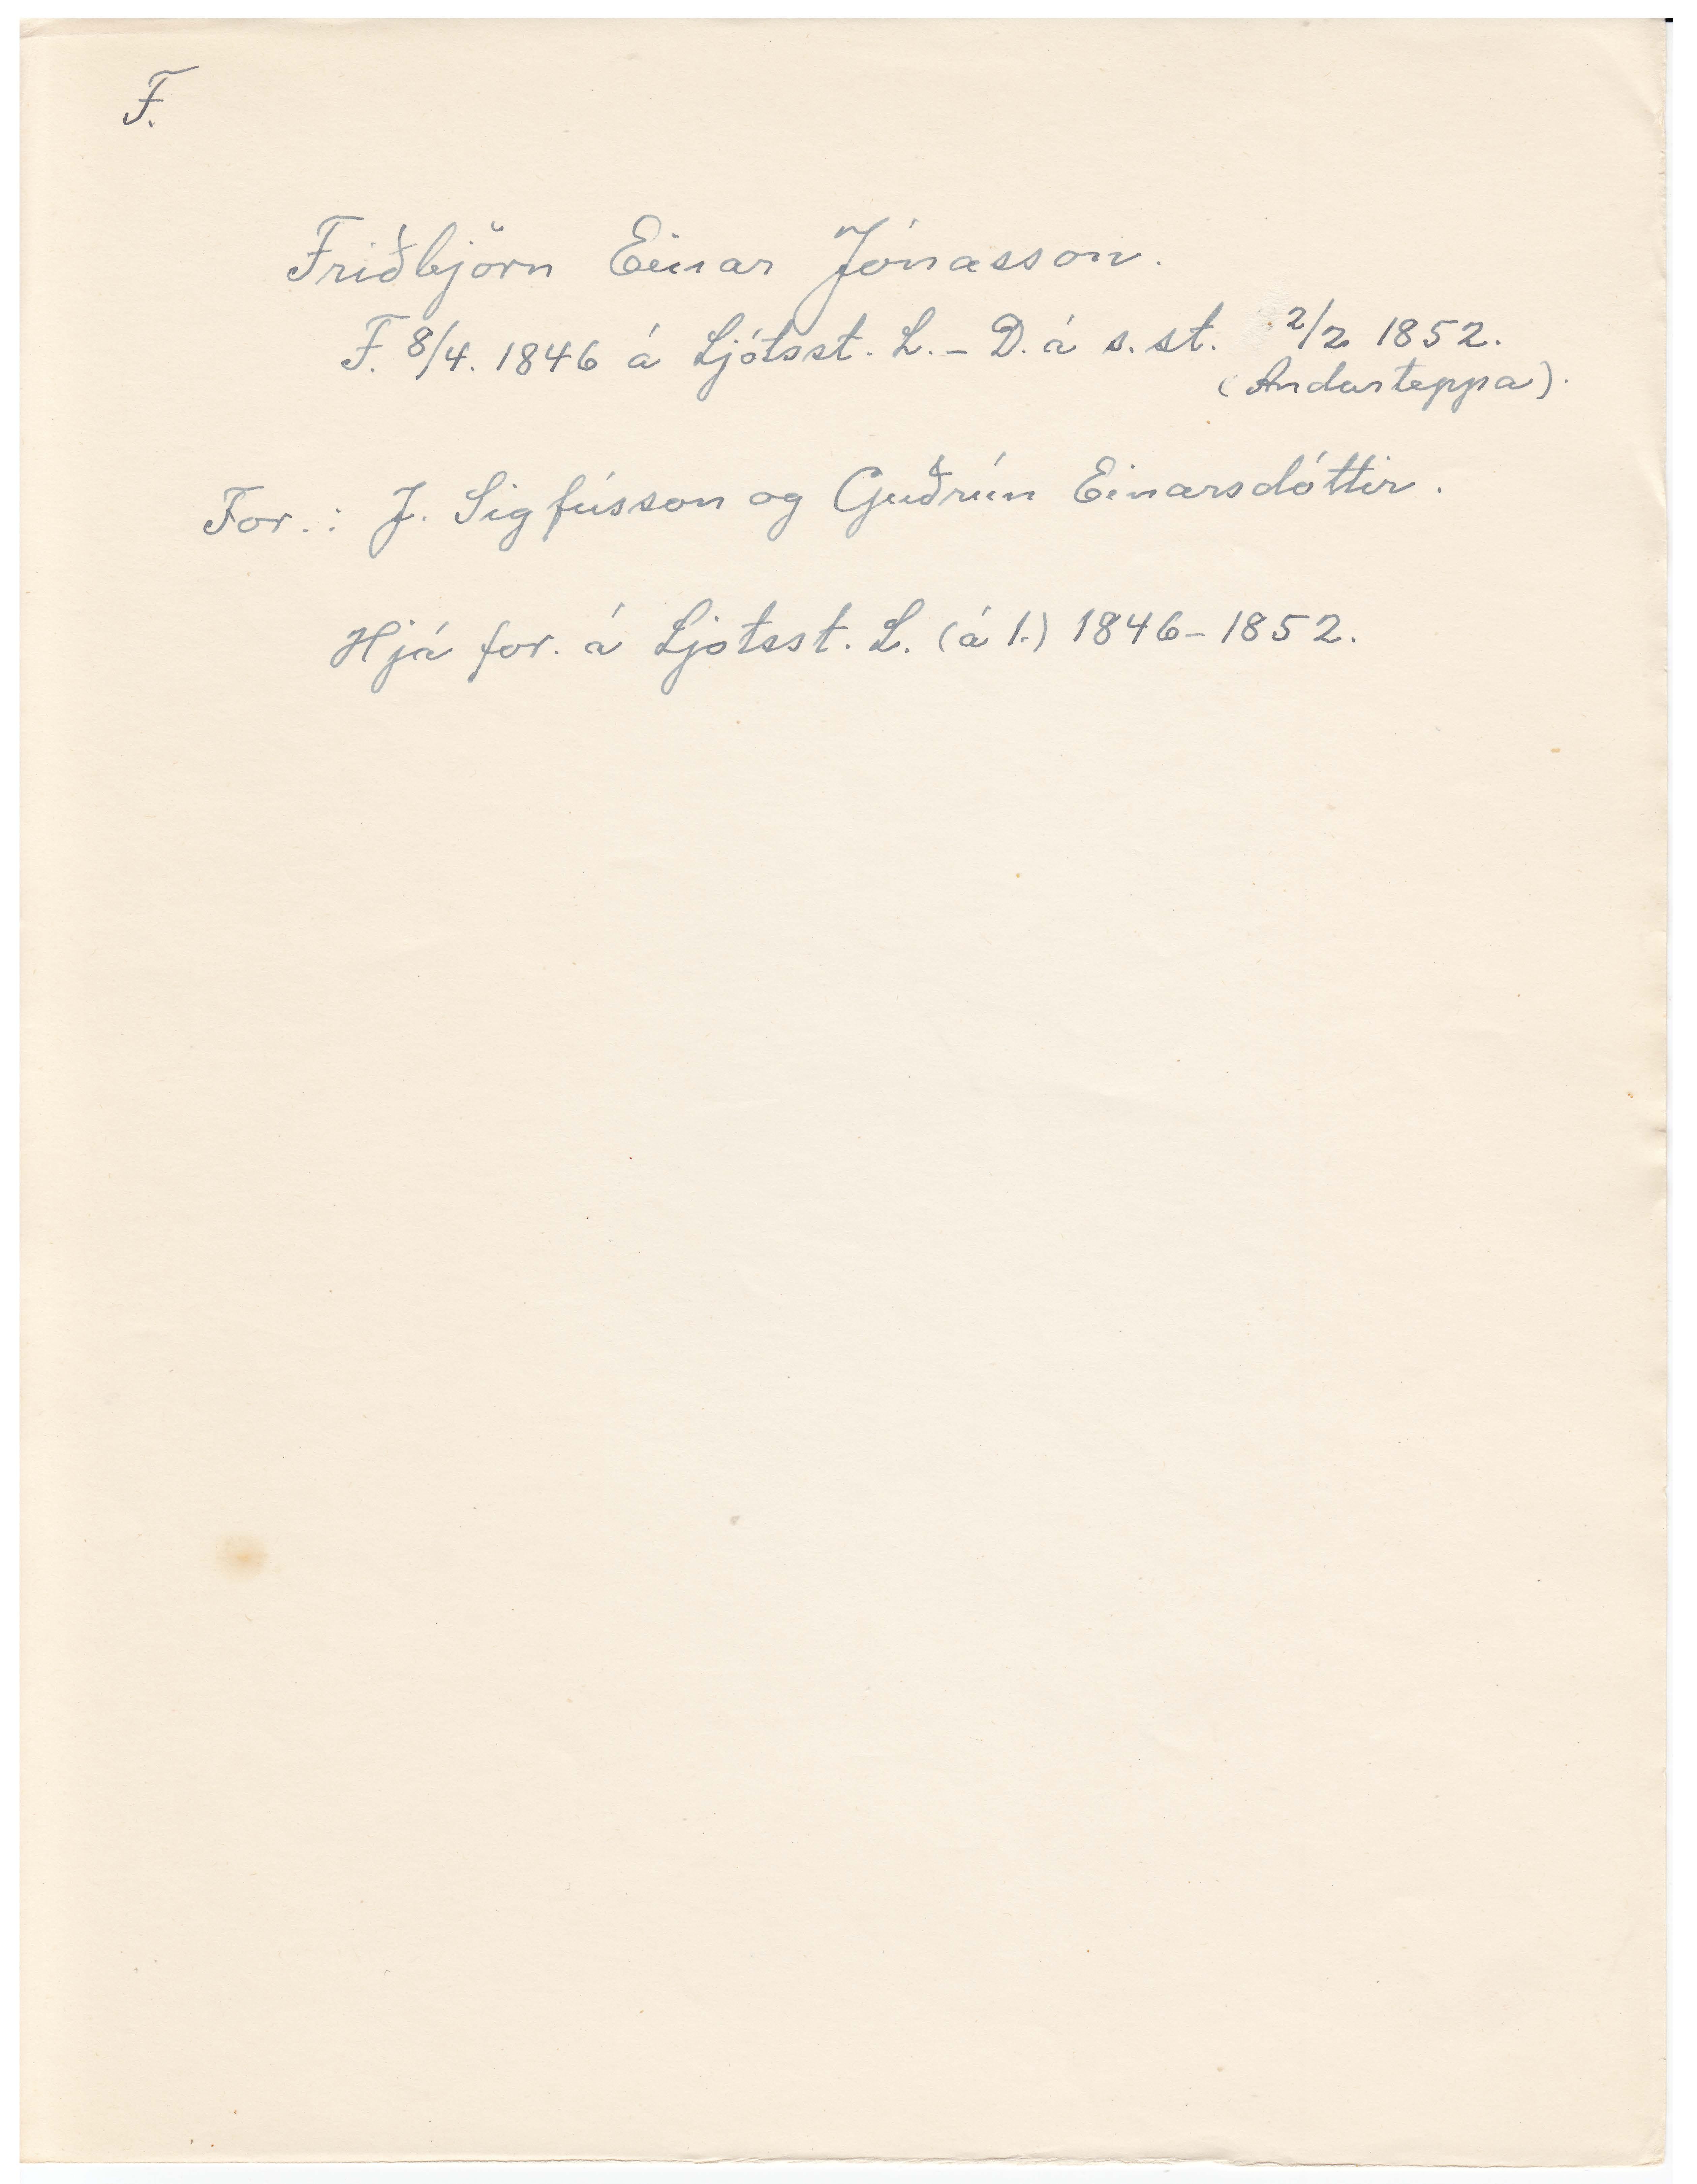 F.
Friðbjörn Einar Jónasson.
F. 8/4. 1846 á Ljótsst. L. – D. á s. st. 2/2 1852.
(Andarteppa).
For.: J. Sigfússon og Guðrún Einarsdóttir.
Hjá for. á Ljótsst. L. (á 1.) 1846–1852.